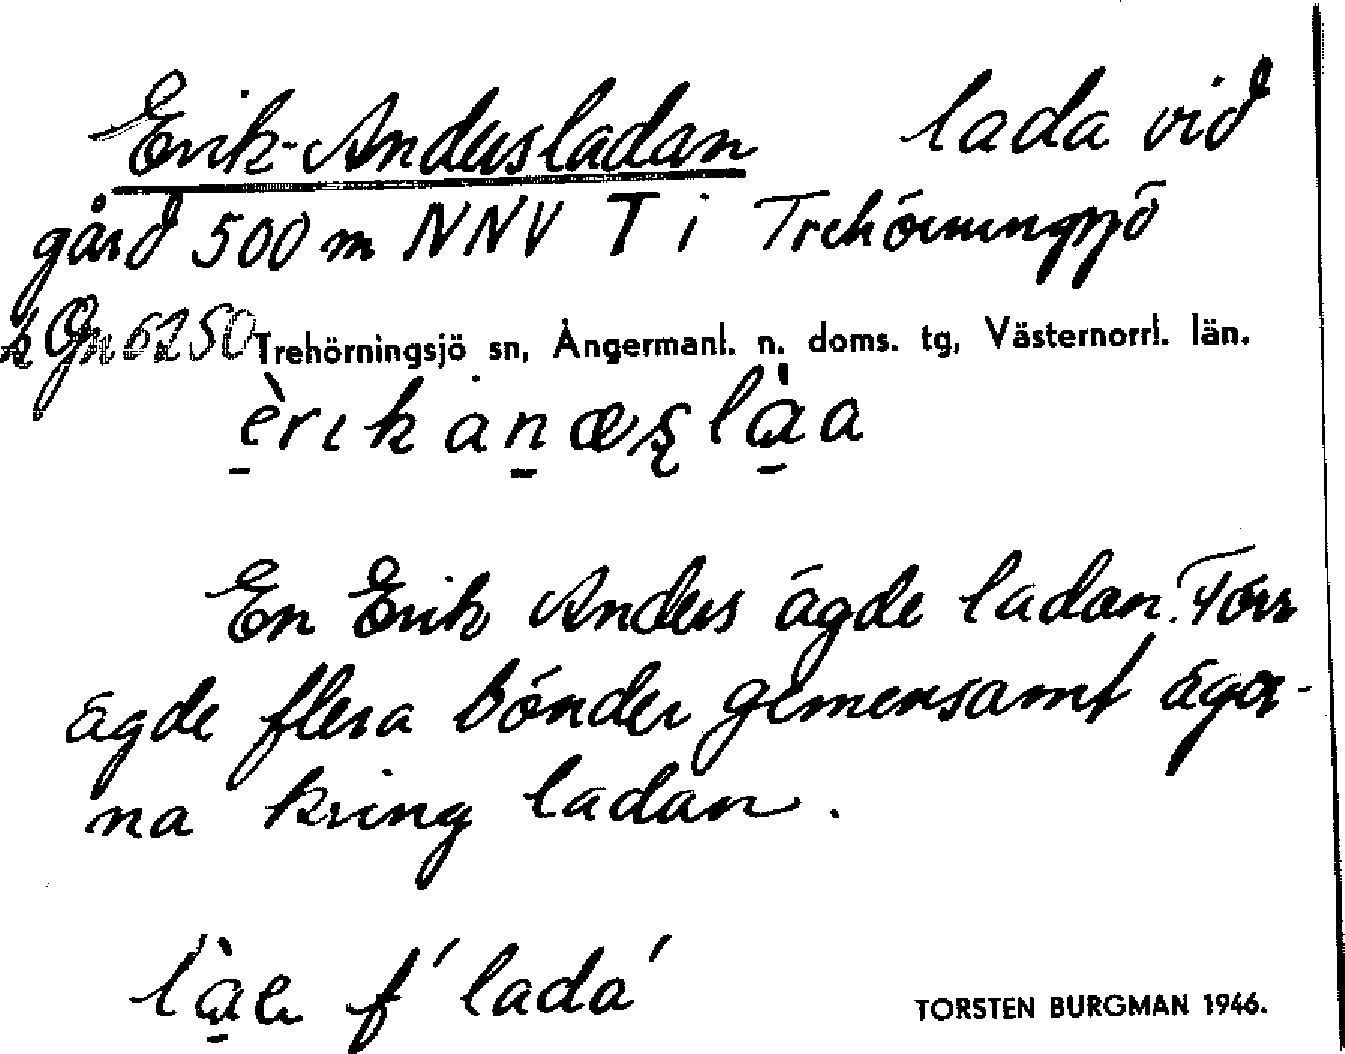 Erik-Andersladan lada vid
gård 500 m NNV T i Trehörningsjö
k Gn 6250 Trehörningsjö sn, Ångermanl. n. doms. tg, Västernorrl. län.
En Erik Anders ägde ladan. Förr
ägde flera bönder gemensamt ägor-
na kring ladan.
f 'lada'
TORSTEN BURGMAN 1946.